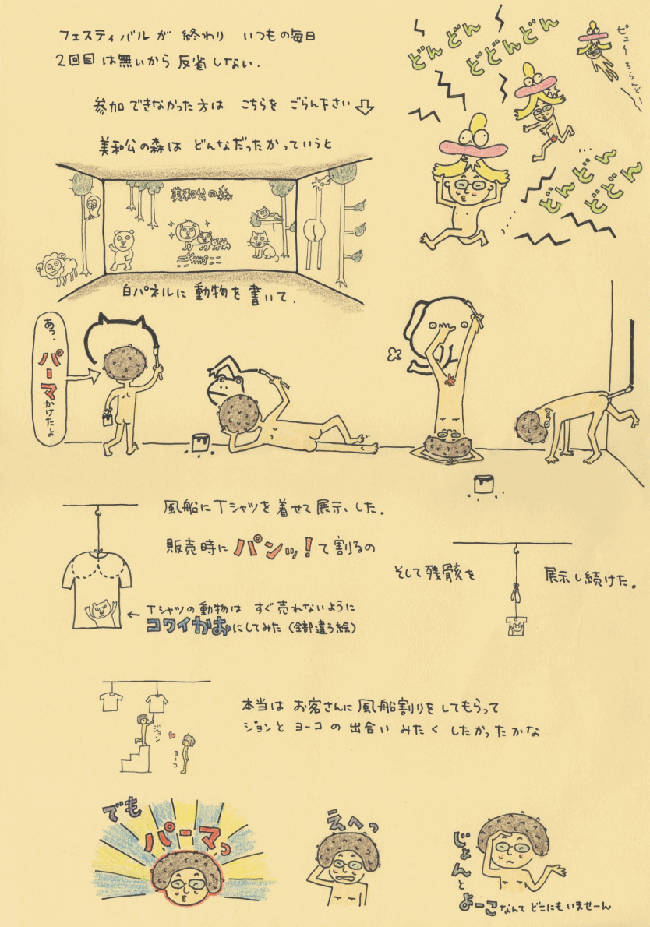 フェスティバルが 終わり いつもの毎日
2回目は無いから 反省しない.
参加 できなかった 方は こちらを ごらん下さい
美和公の森は どんなだったかっていうと
どんどん
どどんどん
どんどん
どどん
美和公の森
白パネルに 動物を 書いて.
あっ、
パーマ
かけたよ
風船に Tシャツを 着せて 展示、した.
販売時に パンッ! て 割るの
そして残骸を
展示し続けた.
← Tシャツの動物は すぐ売れないように
コワイかおにしてみた(全部違う絵)
ジョン
ヨーコ
本当は お客さんに 風船割りを してもらって
ジョンと ヨーコ の 出会い みたく したかったかな
でも
パーマっ
えへっ
じょんと
よーこなんて どこにもいませーん